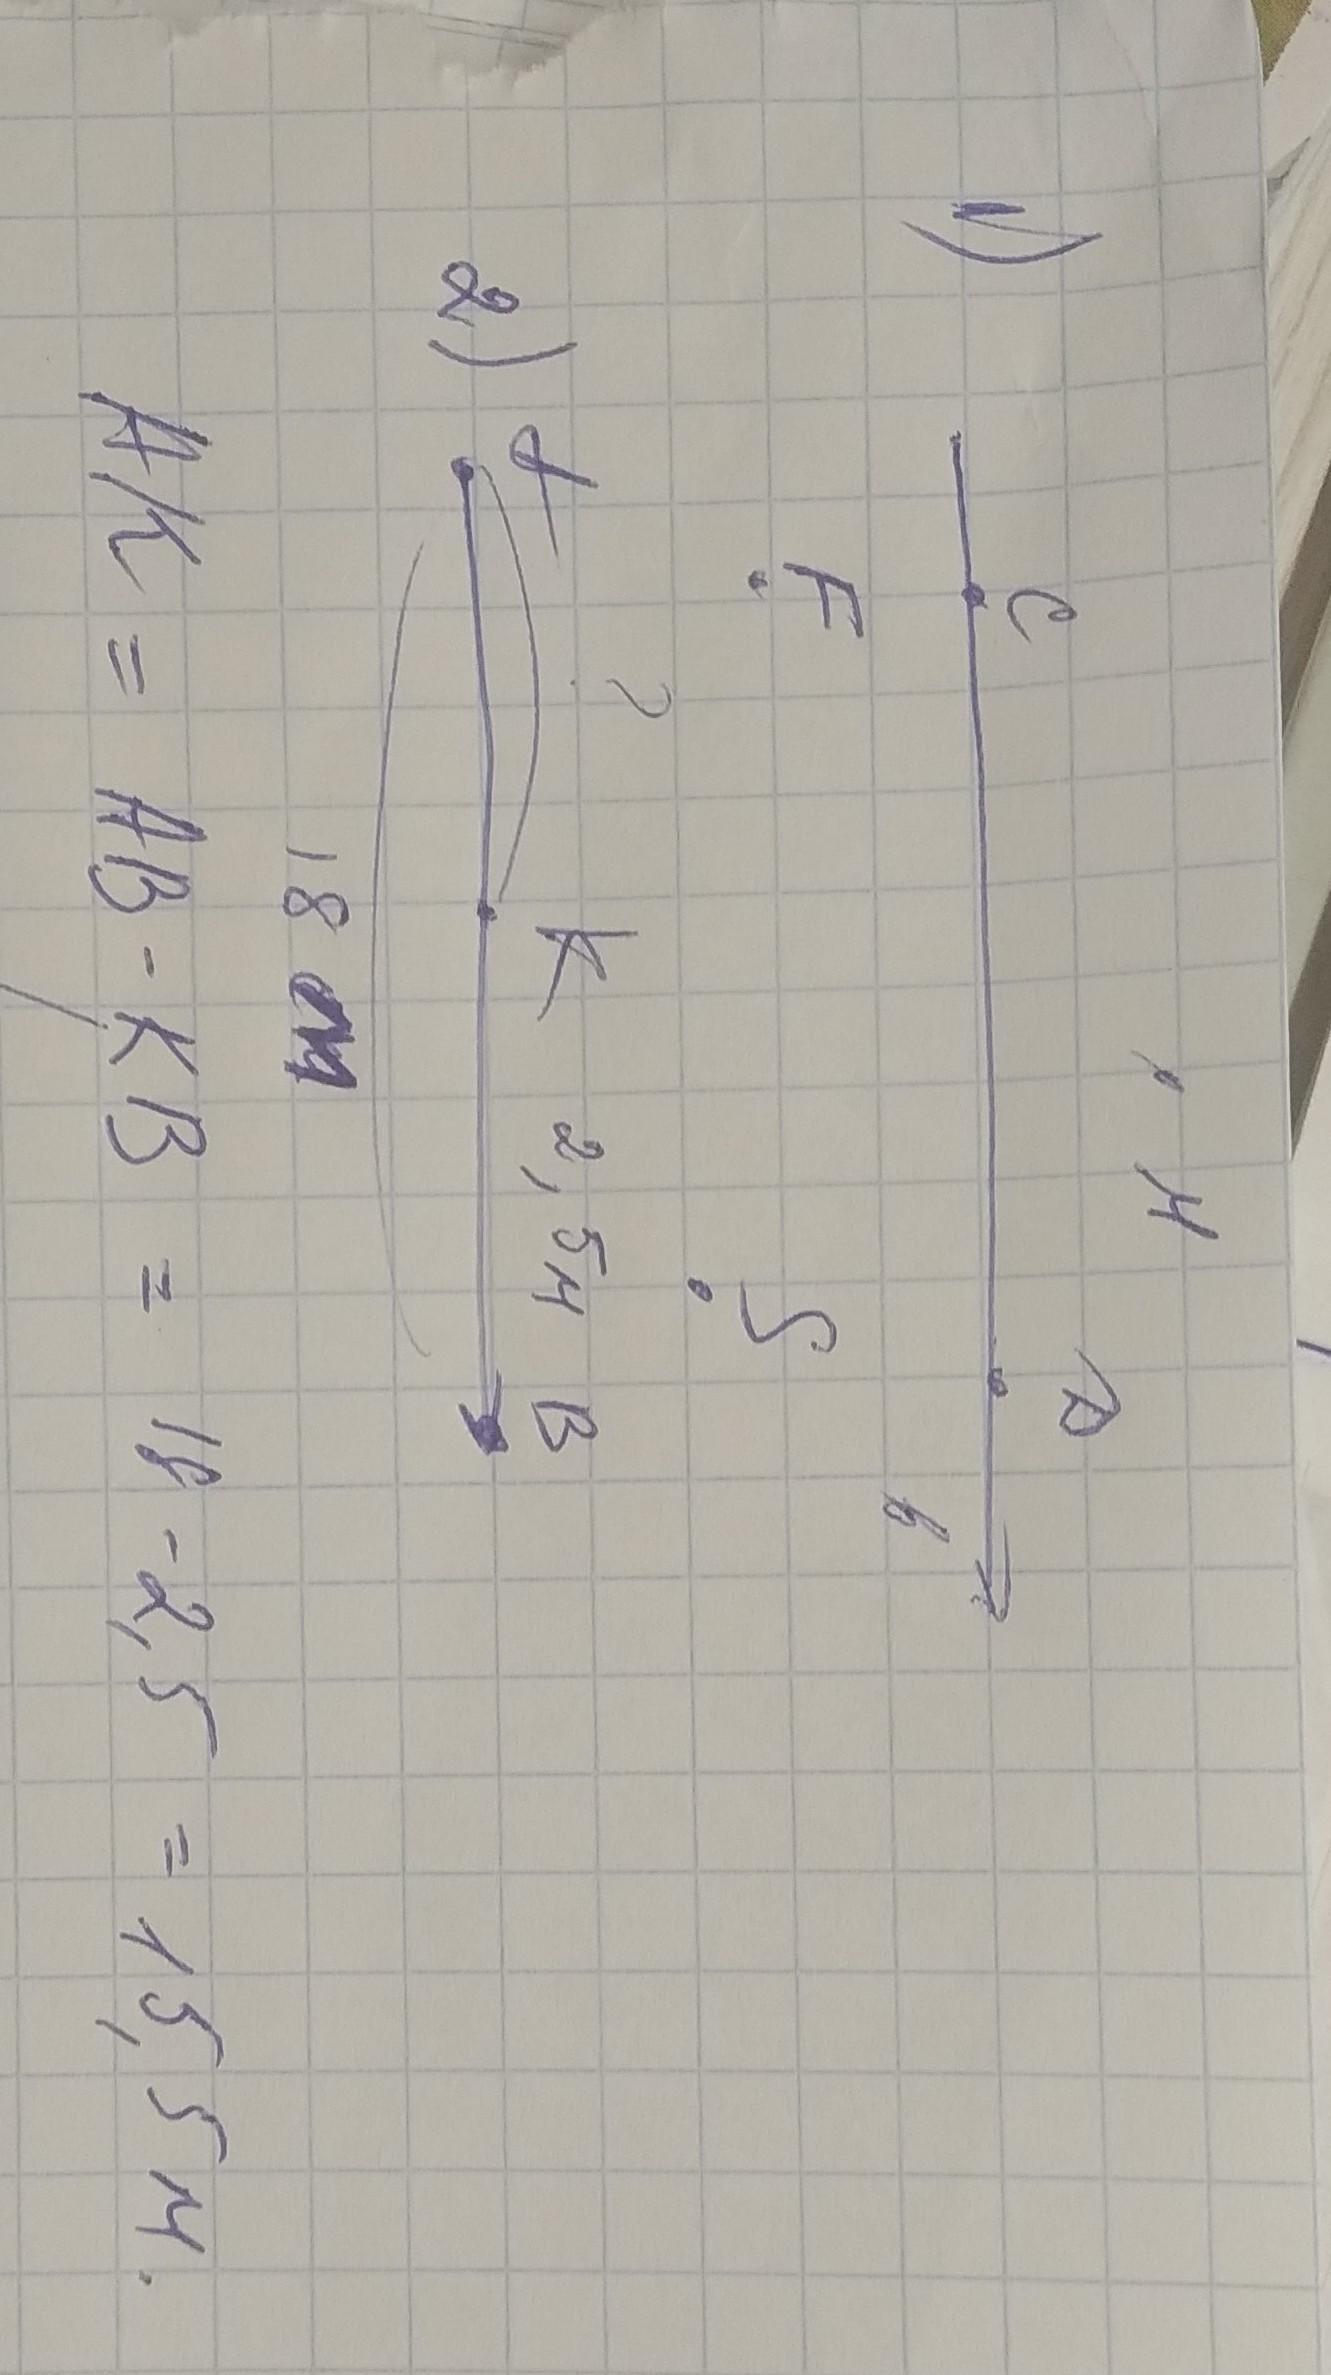 1)
C
М
D
F
S
b
2) A ? K 2,5м B
18 см
AK = AB - KB = 18 - 2,5 = 15,5 м.